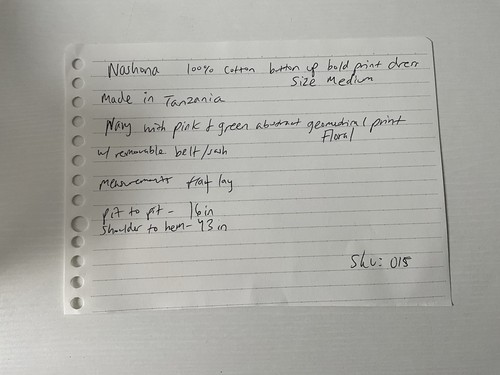 Nashona 100% cotton button up bold print dress
Size Medium
Made in Tanzania
Navy with pink & green abstract geometrical print
Floral
w/ removable belt/sash
measurements flat lay
pit to pit - 16 in
shoulder to hem - 43 in
Sku: 015